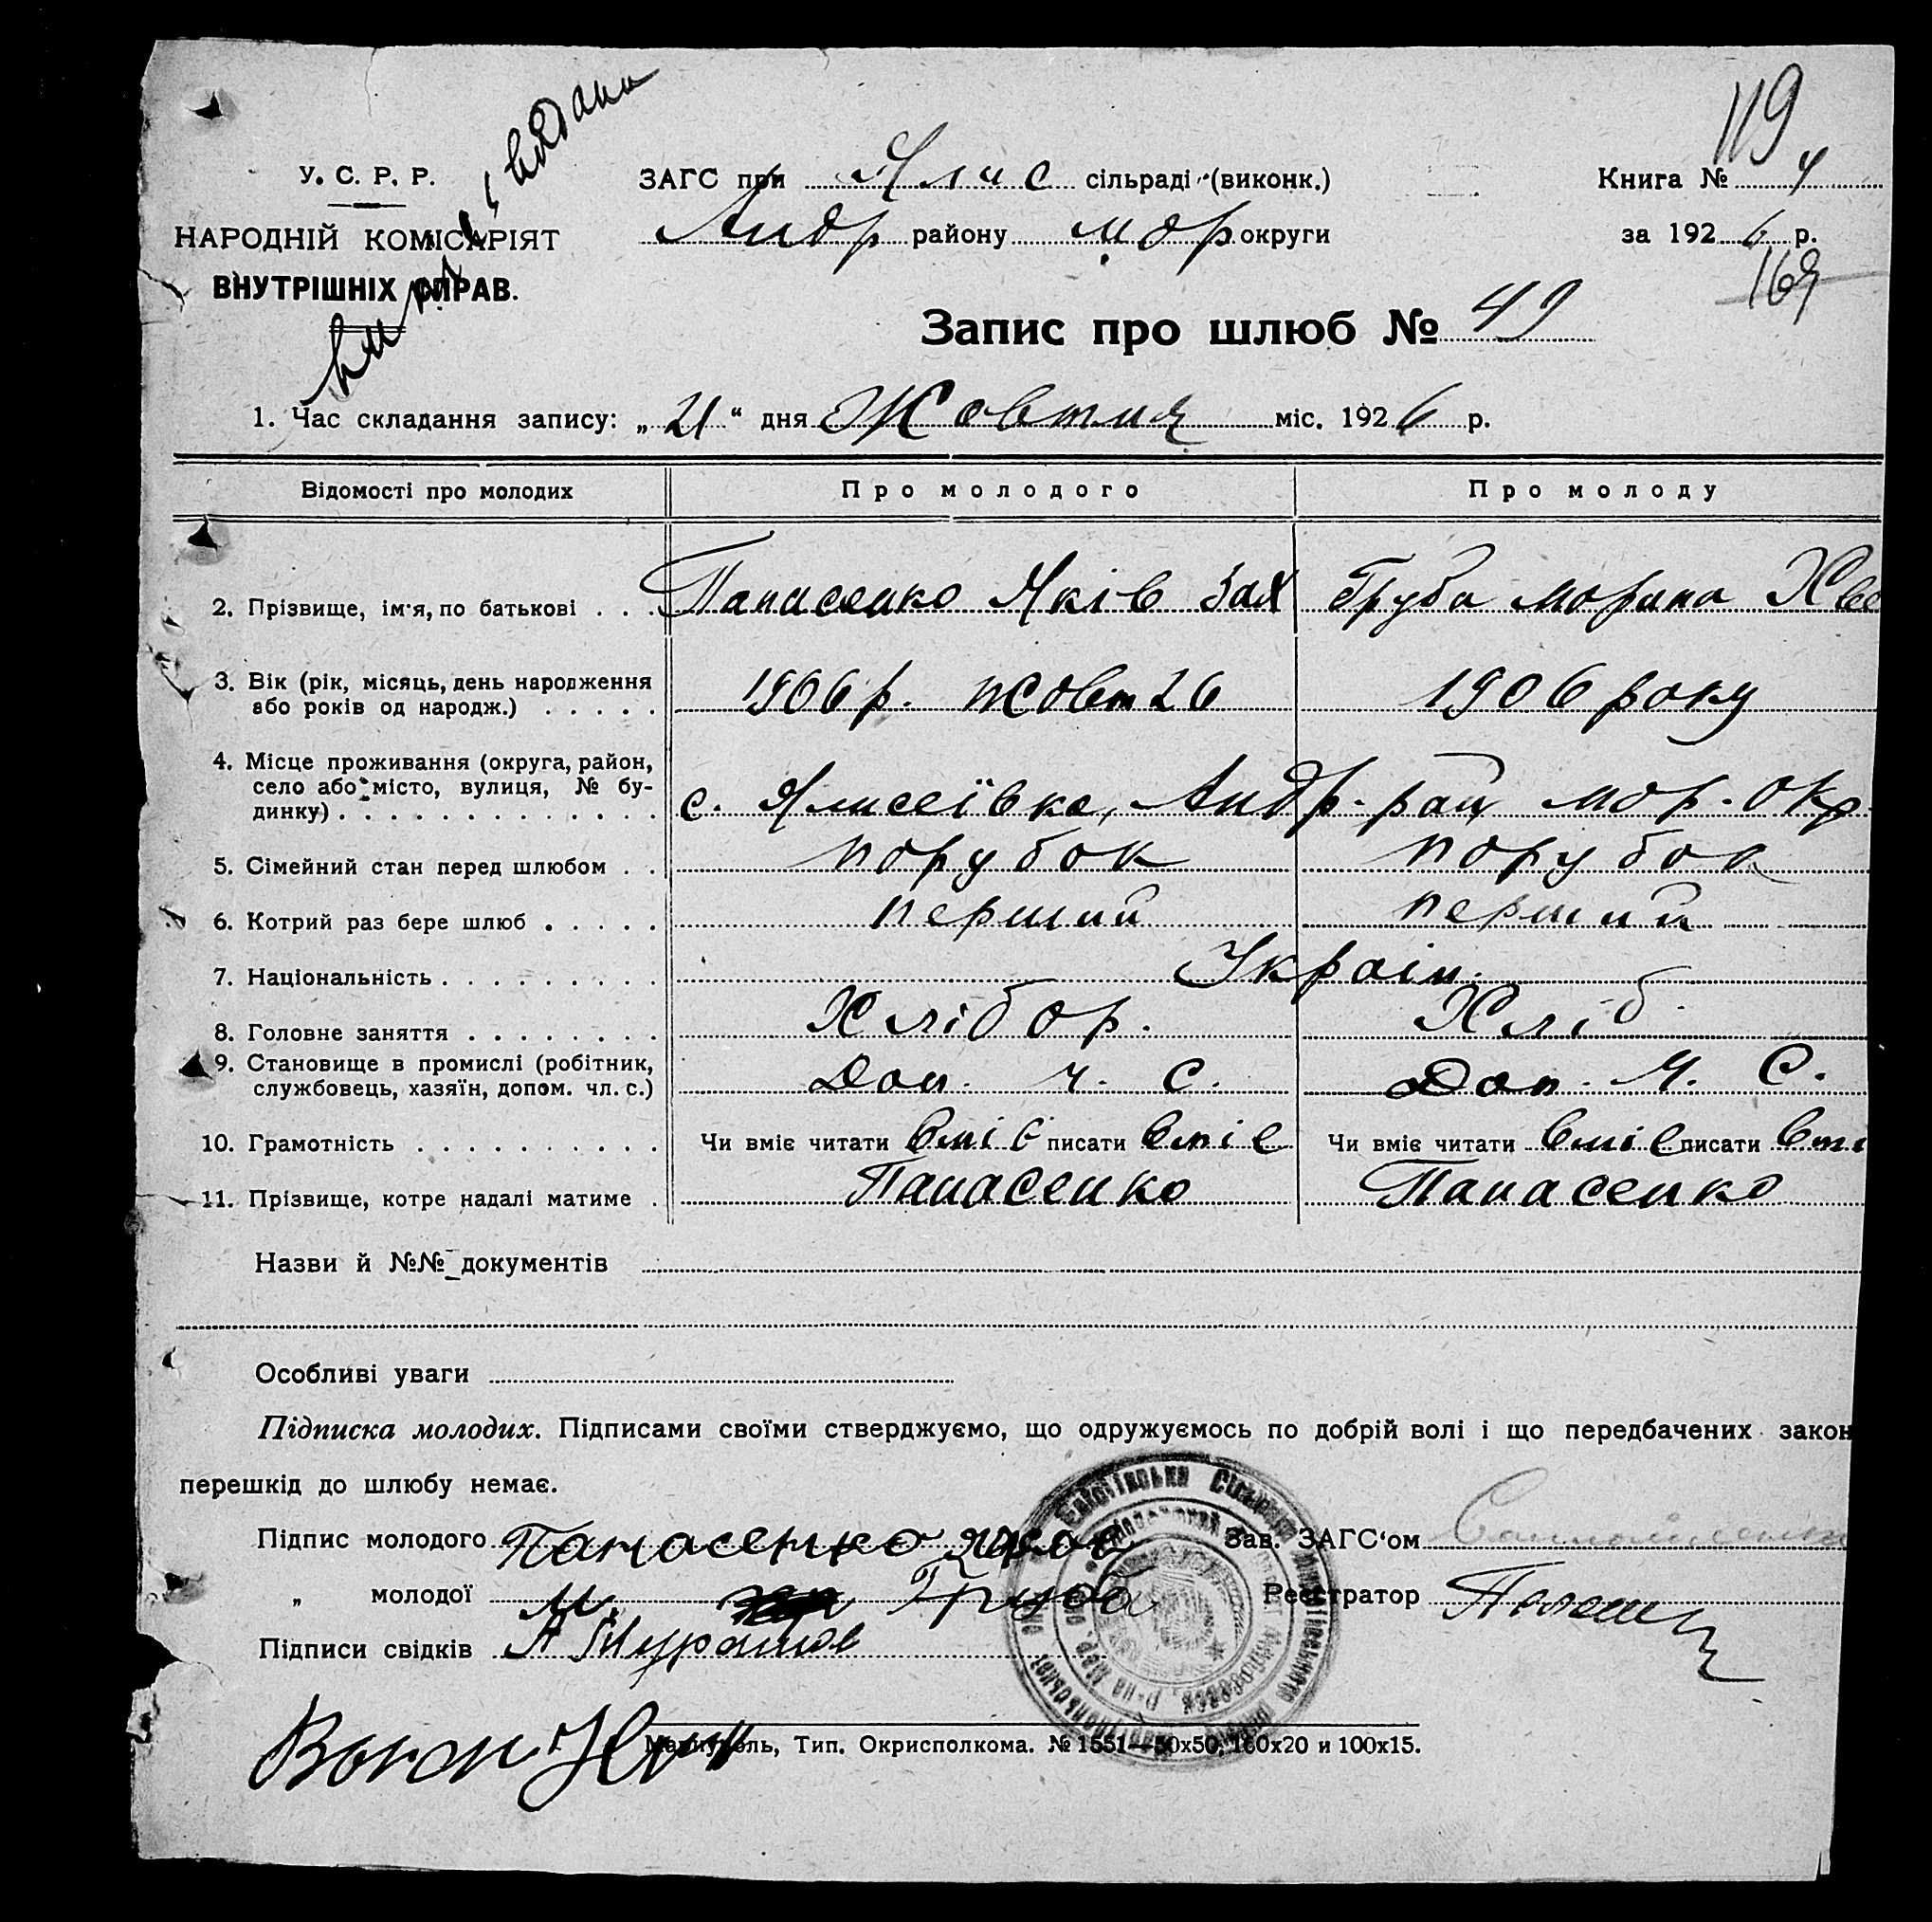 119
виписка видана
У. С. Р. Р.
НАРОДНІЙ КОМІСАРІЯТ
ВНУТРІШНІХ СПРАВ.
ЗАГС при Ялис сільраді (виконк.)
Андр району мар округи
Книга № 4
за 1926 р.
169
Запис про шлюб № 49
1. Час складання запису: „21“ дня Жовтня міс. 1926 р.
Відомості про молодих Про молодого Про молоду
2. Прізвище, ім'я, по батькові . . . Панасенко Яків Зах Груба Марина Хве
3. Вік (рік, місяць, день народження
або років од народж.) . . . . . 1906 р. Жовт 26 1906 року
4. Місце проживання (округа, район,
село або місто, вулиця, № бу-
динку) . . . . . . . . . . . . . с. Ялисеївка, Андр. рай мар. окр.
5. Сімейний стан перед шлюбом . . порубок порубок
6. Котрий раз бере шлюб . . . . . перший перший
7. Національність . . . . . . . . . Україн.
8. Головне заняття . . . . . . . . Хлібор. Хліб.
9. Становище в промислі (робітник,
службовець, хазяїн, допом. чл. с.) Доп. ч. с. Доп. ч. с.
10. Грамотність . . . . . . . . . . Чи вміє читати вміє писати вміє Чи вміє читати вміє писати вмі
11. Прізвище, котре надалі матиме . Панасенко Панасенко
Назви й №№ документів
Особливі уваги
Підписка молодих. Підписами своїми стверджуємо, що одружуємось по добрій волі і що передбачених закон
перешкід до шлюбу немає.
Підпис молодого Панасенко Зав. ЗАГС'ом
„ молодої М. Груба Реєстратор
Підписи свідків
Мариуполь, Тип. Окрисполкома. № 1551—50х50, 160х20 и 100х15.